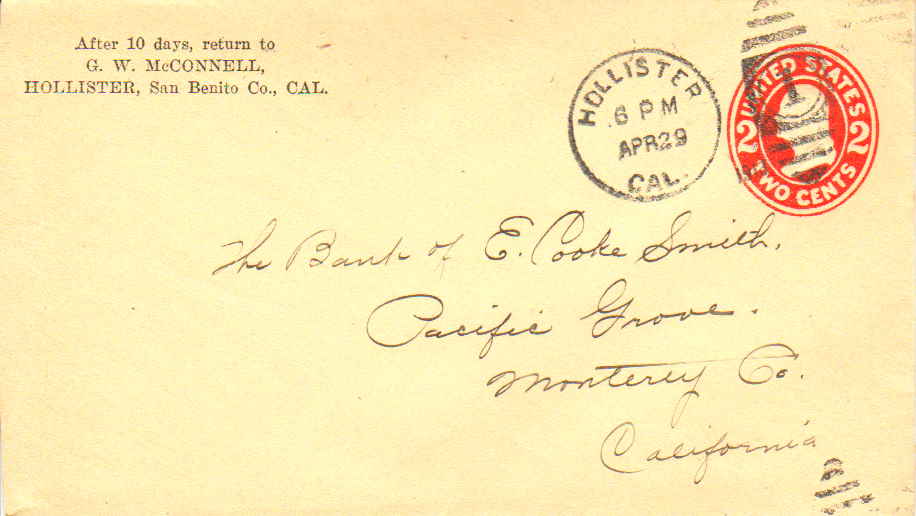 After 10 days, return to
G. W. McCONNELL,
HOLLISTER, San Benito Co., CAL.
HOLLISTER
6 PM
APR 29
CAL.
UNITED STATES
2 2
TWO CENTS
1
The Bank of E. Cooke Smith.
Pacific Grove.
Monterey Co.
California